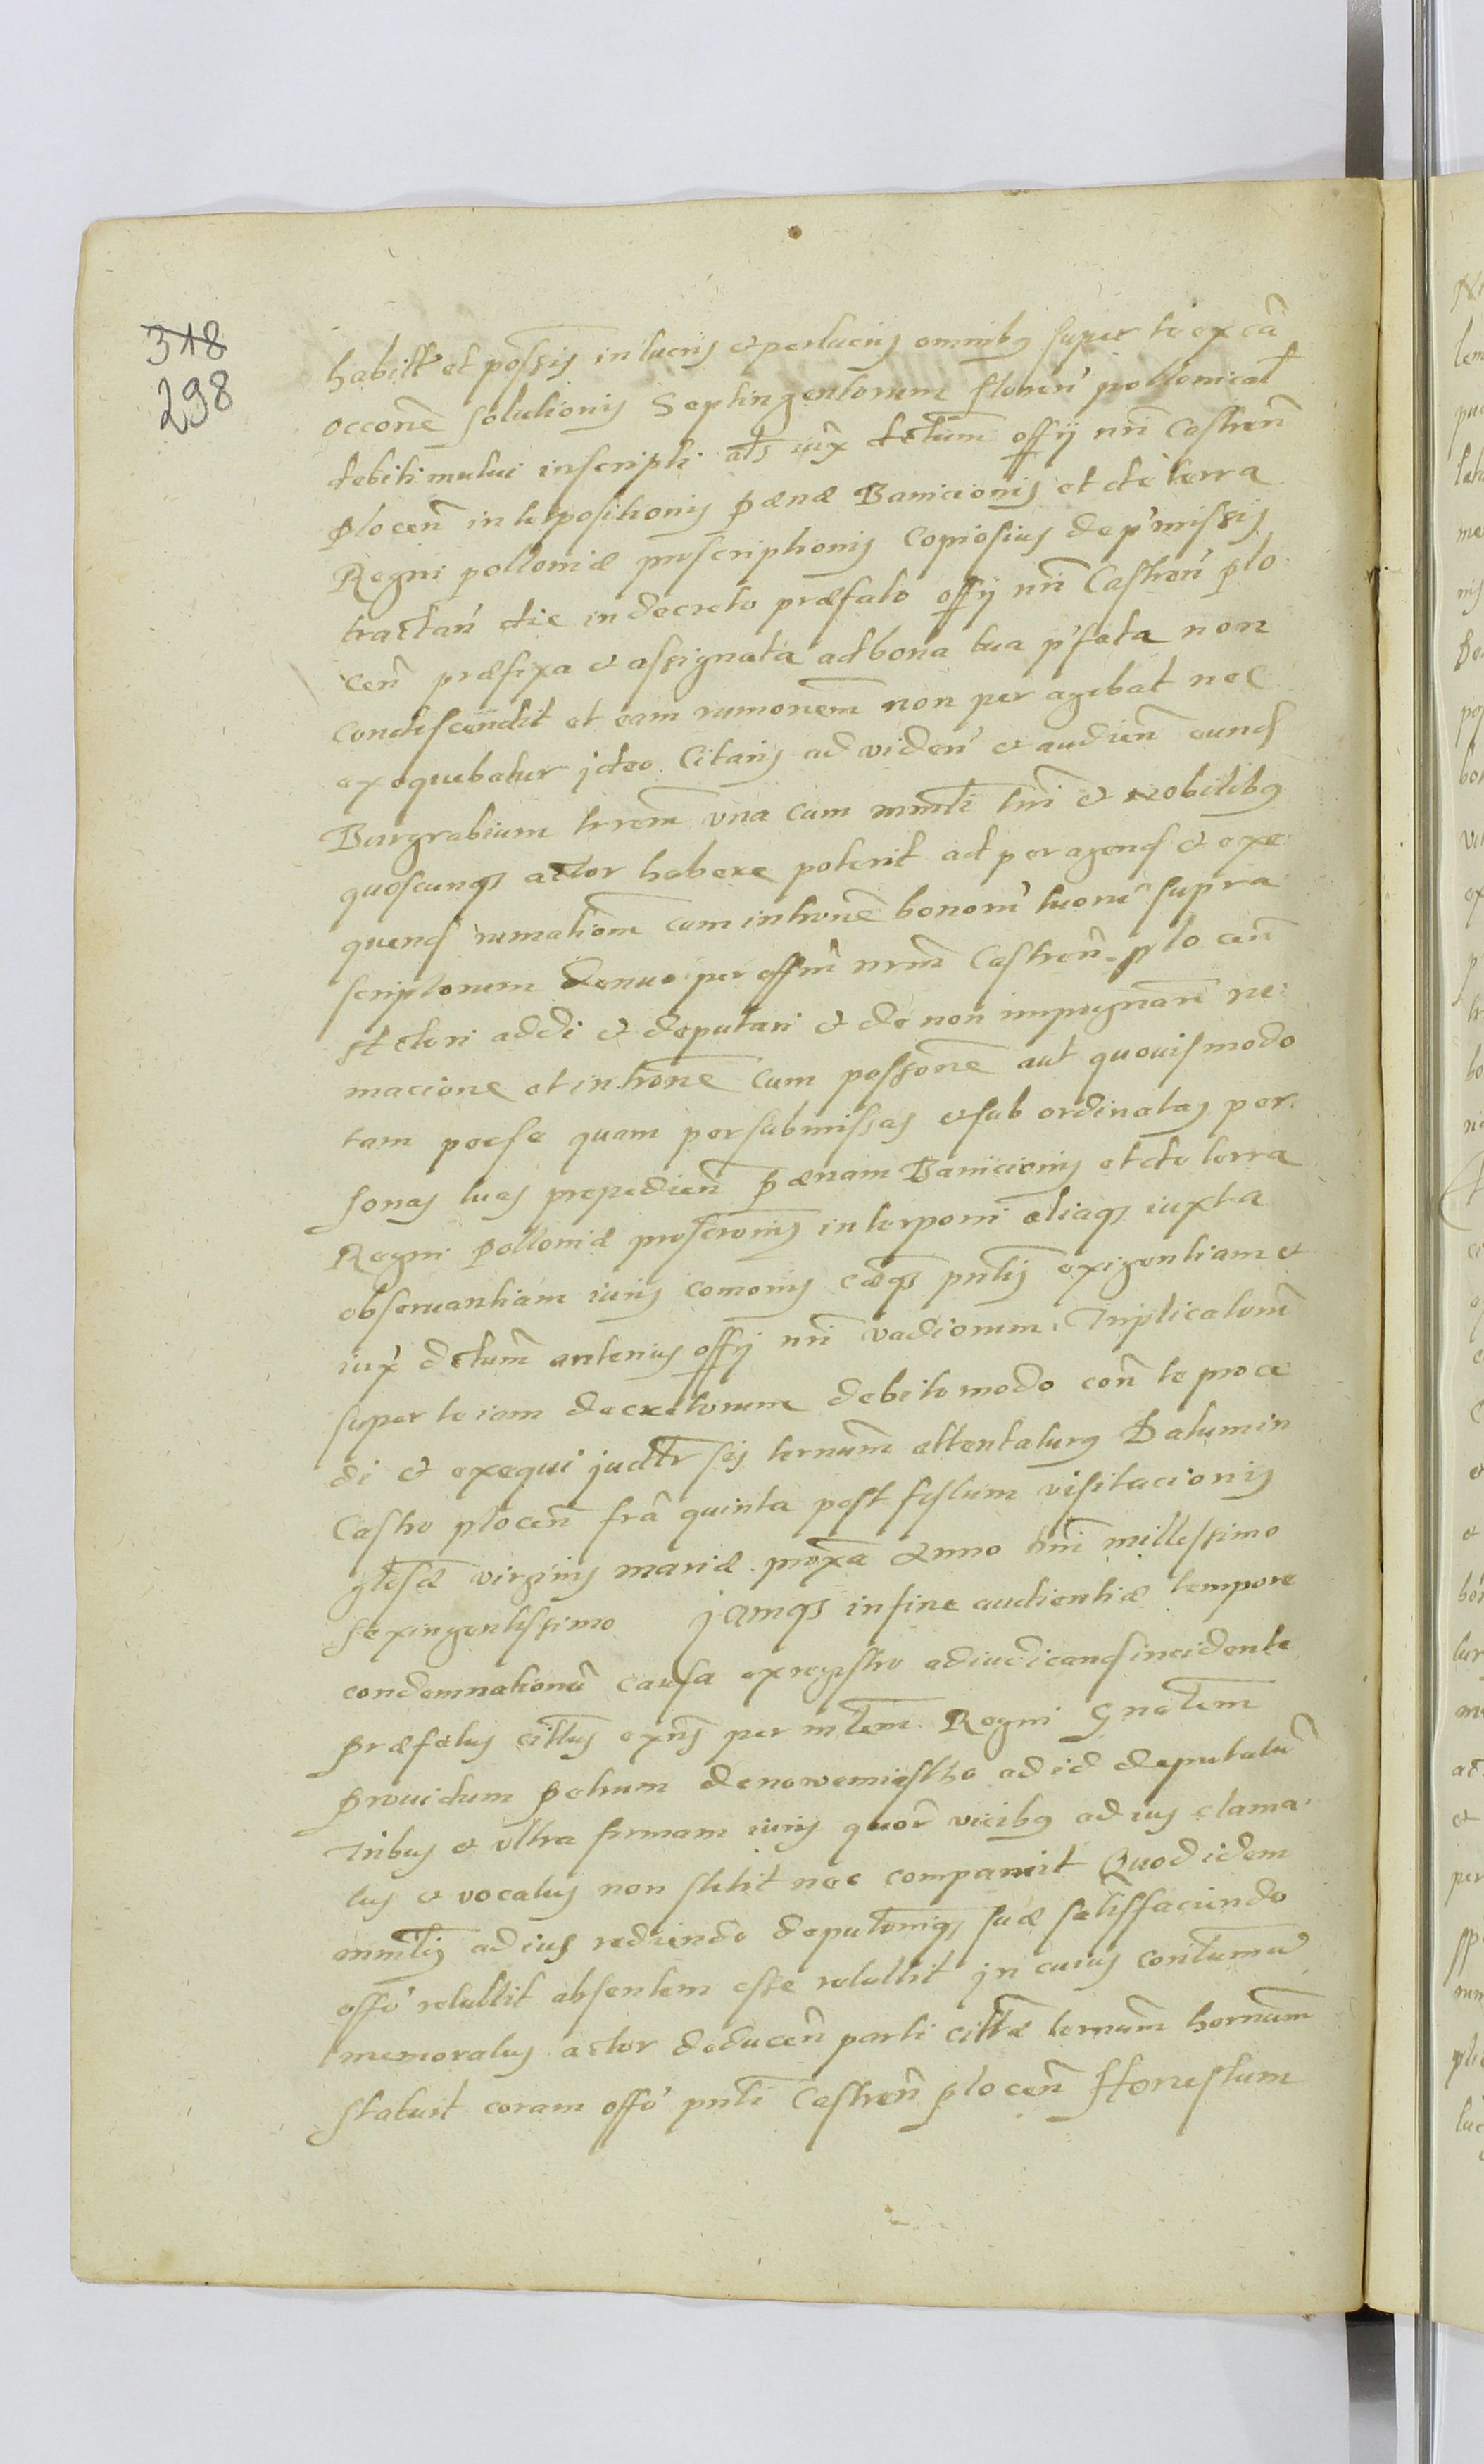 318
298
habitt et possis in lucris et perlucris omnibq super te ex cã
occonẽ solutionis Septingentorum floren̄ pollonicat
debiti mutui inscripti als iux dctum offy nri Castren̄
plocen̄ interpositionis pænæ Banicionis et de terra
Regni polloniæ proscriptionis copiosius de p'missis
tractan̄ die in decreto præfato offy nri Castren̄ plo
cen̄ præfixa et assignata ad bona tua p'fata non
condescendit et eam rumonem non per agebat nec
exequebatur jdeo Citaris ad viden̄ et audien̄ eund
Burgrabium trrem vna cum mnrli tnri et nobilibq
quoscunqs actor habere poterit ad peragend et exe
quend rumatiom cum intronē bonorū tuorū supra
scriptorum denuo per offm nrm Castren̄ plo cen̄
Actori addi et deputari et de non impugnare ru
macione et intronē cum possonē aut quouismodo
tam per se quam per submissas et sub ordinatas per
sonas tuas prepedien̄ pænam Banicionis et de terra
Regni polloniæ proscronis interponi aliaqs iuxta
obseruantiam iuris comonis cæqs pntis exigentiam et
iux dctum anterius offy nri vadiorum triplicatorū
super te iam decretorum debito modo con̄ te proce
di et exequi judtr sis ternum attentaturq Datum in
Castro plocen̄ frã quinta post festum visitacionis
glosæ virginis mariæ proxã Anno dni millessimo
sexingentissimo jamqs in fine audientiæ tempore
condemnationū causa ex registro adiudicand incidente
præfatus cittus exñs per mlem Regni gnalem
prouidum petrum de nowemiastho ad id deputatū
tribus et vltra firmam iuris quor vicibq ad ius clama
tus et vocatus non stetit nec comparuit Quod idem
mnrlis ad ius rediendo deputoniqs suæ satisfaciendo
offo retullit absentem esse retullit jn cuius contuma
memoratus actor deducen̄ parti cittæ ternum hornum
statuit coram offo pnti Castren̄ plocen̄ Honestum